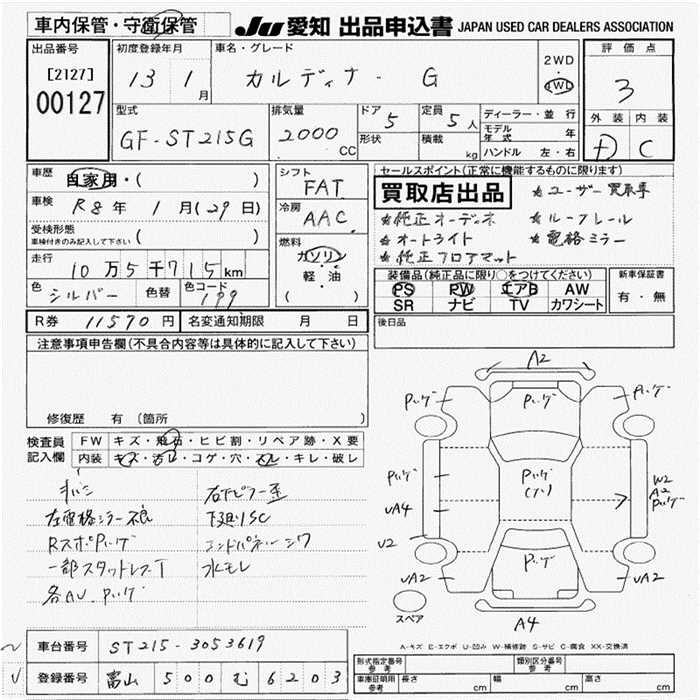 車内保管・守衛保管
JU 愛知 出品申込書 JAPAN USED CAR DEALERS ASSOCIATION
出品番号
[2127]
00127
初度登録年月
13 1月
車名・グレード
カルディナ - G
2WD
4WD
評価点
3
外装 内装
D C
型式
GF-ST215G
排気量
2000 CC
ドア 5
形状
定員 5人
積載 kg
ディーラー・並行
モデル年式 年
ハンドル 左・右
車歴 自家用・( )
車検 R8年 1月(29日)
受検形態
車検付きのみ記入して下さい ( )
走行 10万5千715km
色 シルバー 色替 色コード 199
シフト
FAT
冷房
AAC
燃料
ガソリン
軽・油
( )
セールスポイント(正常に機能するものに限ります)
買取店出品
☆ユーザー買取車
☆純正オーディオ ☆ルーフレール
☆オートライト ☆電格ミラー
☆純正フロアマット
装備品(純正品に限り○をつけてください)
PS PW エアB AW
SR ナビ TV カワシート
新車保証書
有・無
R券 11570円 名変通知期限 月 日
後日品
注意事項申告欄(不具合内容等は具体的に記入して下さい)
修復歴 有 (箇所 )
検査員記入欄
FW キズ・飛石・ヒビ割・リペア跡・X要
内装 キズ・汚レ・コゲ・穴・スレ・キレ・破レ
キバミ 右下ピラー歪
左電格ミラー不良 下廻りSC
RスポPハゲ エンドパネルシワ
一部スタットレスT 水モレ
各AU.Pハゲ
A2
Pハゲ Pハゲ Pハゲ
Pハゲ Pハゲ
(ハ)
UA4
U2
W2
A2
Pハゲ
Pハゲ
UA2 UA2
A4
スペア
A-キズ E-エクボ U-凹み W-補修跡 S-サビ C-腐食 XX-交換済
車台番号 ST215-3053619
登録番号 富山 500 む 6203
形式指定番号 参考
類別区分番号 参考
車庫証明用 参考 長さ cm 幅 cm 高さ cm